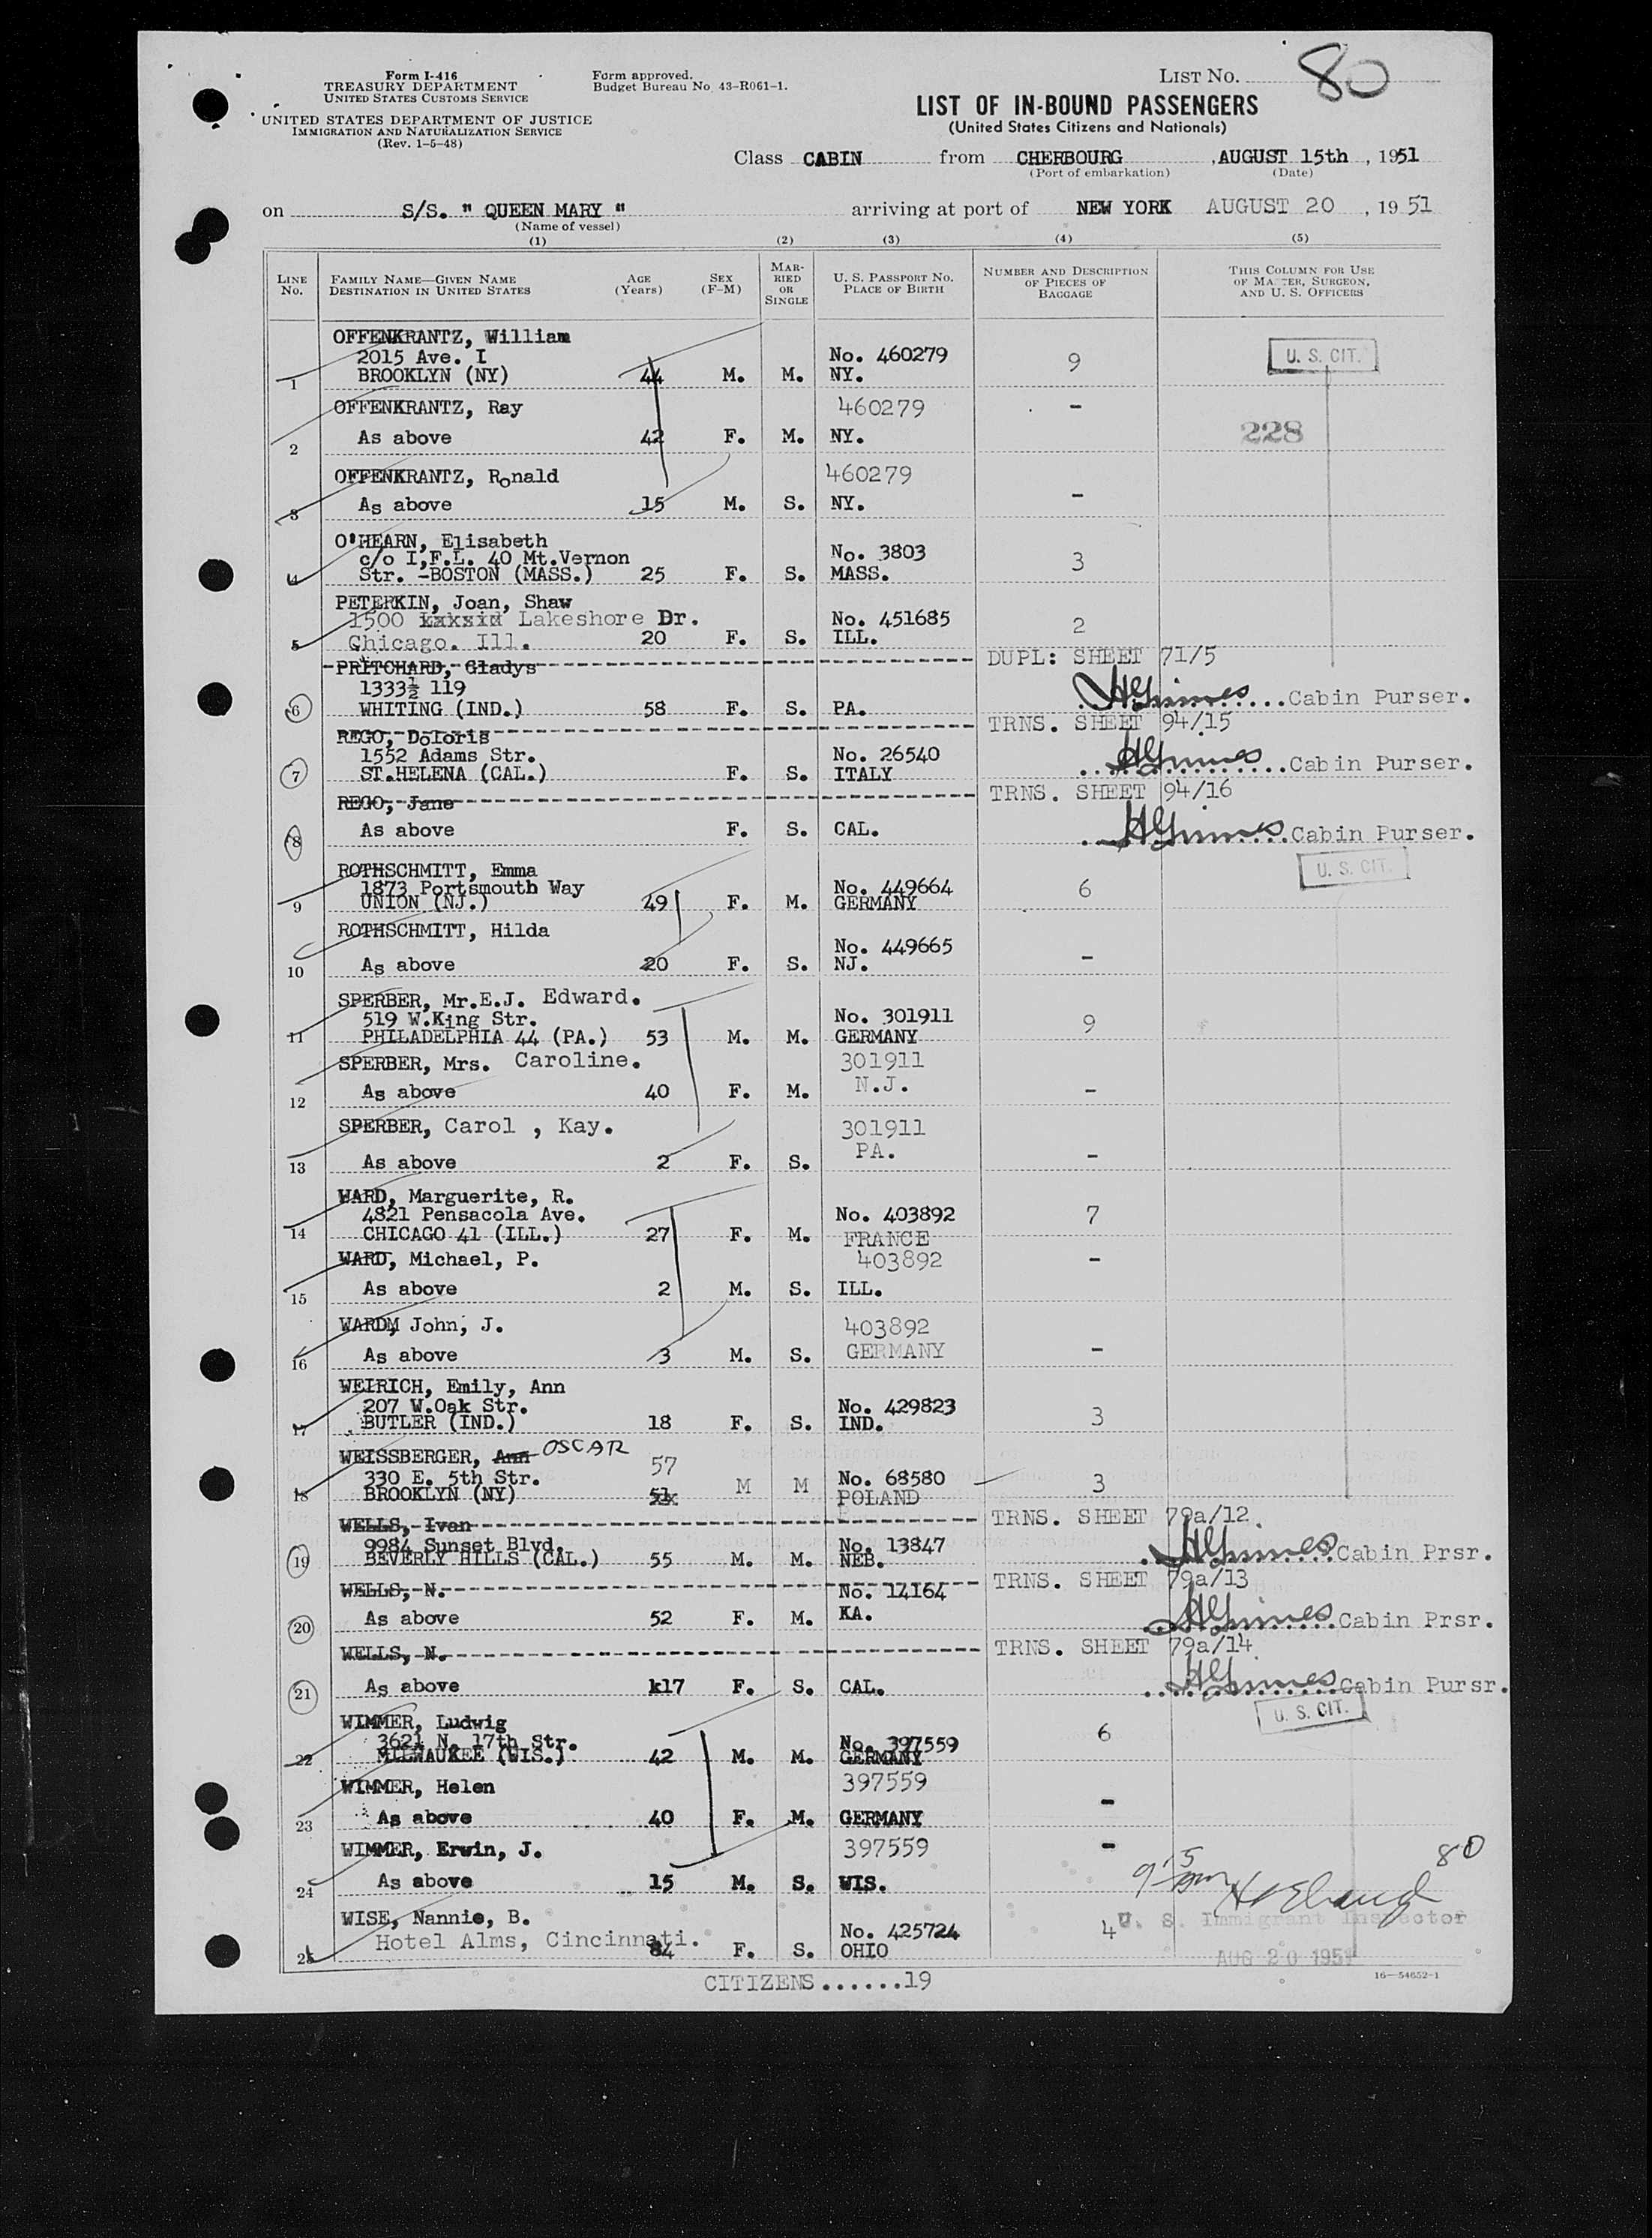 Form I-416
TREASURY DEPARTMENT
UNITED STATES CUSTOMS SERVICE
UNITED STATES DEPARTMENT OF JUSTICE
IMMIGRATION AND NATURALIZATION SERVICE
(Rev. 1-5-48)
Form approved.
Budget Bureau No. 43-R061-1.
LIST NO. 80
LIST OF IN-BOUND PASSENGERS
(United States Citizens and Nationals)
Class CABIN from CHERBOURG , AUGUST 15th , 1951
(Port of embarkation) (Date)
on S/S. " QUEEN MARY " arriving at port of NEW YORK AUGUST 20 , 1951
(Name of vessel)
(1) (2) (3) (4) (5)
LINE NO.
FAMILY NAME—GIVEN NAME
DESTINATION IN UNITED STATES
AGE (Years)
SEX (F-M)
MARRIED OR SINGLE
U. S. PASSPORT NO.
PLACE OF BIRTH
NUMBER AND DESCRIPTION OF PIECES OF BAGGAGE
THIS COLUMN FOR USE OF MASTER, SURGEON, AND U. S. OFFICERS
OFFENKRANTZ, William
2015 Ave. I No. 460279 9 U. S. CIT.
1 BROOKLYN (NY) 44 M. M. NY.
OFFENKRANTZ, Ray 460279 -
2 As above 42 F. M. NY. 228
OFFENKRANTZ, Ronald 460279
3 As above 15 M. S. NY. -
O'HEARN, Elisabeth
c/o I,F.L. 40 Mt.Vernon No. 3803 3
4 Str. -BOSTON (MASS.) 25 F. S. MASS.
PETERKIN, Joan, Shaw
1500 Lakeshore Dr. No. 451685 2
5 Chicago. Ill. 20 F. S. ILL.
PRITCHARD, Gladys DUPL: SHEET 71/5
1333½ 119
6 WHITING (IND.) 58 F. S. PA. HGrimes Cabin Purser.
REGO, Doloris TRNS. SHEET 94/15
1552 Adams Str. No. 26540
7 ST.HELENA (CAL.) F. S. ITALY HGrimes Cabin Purser.
REGO, Jane TRNS. SHEET 94/16
8 As above F. S. CAL. HGrimes Cabin Purser.
ROTHSCHMITT, Emma U. S. CIT.
1873 Portsmouth Way No. 449664 6
9 UNION (NJ.) 49 F. M. GERMANY
ROTHSCHMITT, Hilda No. 449665
10 As above 20 F. S. NJ. -
SPERBER, Mr.E.J. Edward.
519 W.King Str. No. 301911 9
11 PHILADELPHIA 44 (PA.) 53 M. M. GERMANY
SPERBER, Mrs. Caroline. 301911
12 As above 40 F. M. N.J. -
SPERBER, Carol , Kay. 301911
13 As above 2 F. S. PA. -
WARD, Marguerite, R.
4821 Pensacola Ave. No. 403892 7
14 CHICAGO 41 (ILL.) 27 F. M. FRANCE
WARD, Michael, P. 403892 -
15 As above 2 M. S. ILL.
WARDM John, J. 403892
16 As above 3 M. S. GERMANY -
WEIRICH, Emily, Ann
207 W.Oak Str. No. 429823 3
17 BUTLER (IND.) 18 F. S. IND.
WEISSBERGER, Ann OSCAR 57
330 E. 5th Str. M M No. 68580 3
18 BROOKLYN (NY) POLAND
WELLS, Ivan TRNS. SHEET 79a/12
9984 Sunset Blvd. No. 13847
19 BEVERLY HILLS (CAL.) 55 M. M. NEB. HGrimes Cabin Prsr.
WELLS, N. No. 14164 TRNS. SHEET 79a/13
20 As above 52 F. M. KA. HGrimes Cabin Prsr.
WELLS, N. TRNS. SHEET 79a/14
21 As above k17 F. S. CAL. HGrimes Cabin Pursr.
WIMMER, Ludwig U. S. CIT.
3621 N. 17th Str. No. 397559 6
22 MILWAUKEE (WIS.) 42 M. M. GERMANY
WIMMER, Helen 397559
23 As above 40 F. M. GERMANY -
WIMMER, Erwin, J. 397559 - 80
24 As above 15 M. S. WIS.
WISE, Nannie, B. No. 425724 4 U. S. Immigrant Inspector
25 Hotel Alms, Cincinnati. 84 F. S. OHIO AUG 20 1951
CITIZENS......19 16—54652-1